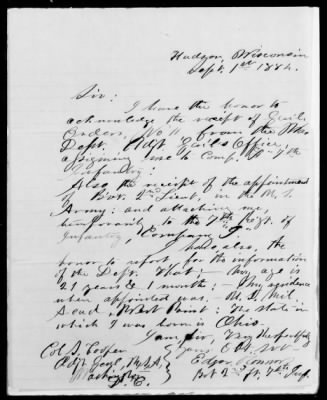 Hudson, Wisconsin
Sept. 1st 1884.
Sir:
I have the honor to
acknowledge the receipt of Genl.
Orders, No 11 from the War
Dept. Adjt. Genl's Office,
assigning me to Comp. 7th
Infantry:
Also the receipt of the appointment
of Bvt. 2nd Lieut. in the U. S.
Army: and attaching me,
temporarily to the 7th Regt. of
Infantry, Company
I have, also, the
honor to report for the information
of the Dept. that: — My age is
21 years & 1 month: My residence
when appointed was, — U. S. Mil.
Acad. West Point: The state in
which I was born is Ohio.
I am Sir, Very Respectfully
Your Obt. Svt.
Col. S. Cooper
Adjt. Genl. U.S.A.
Washington
D. C.
Edgar
Bvt 2nd Lt. 7th Inf.